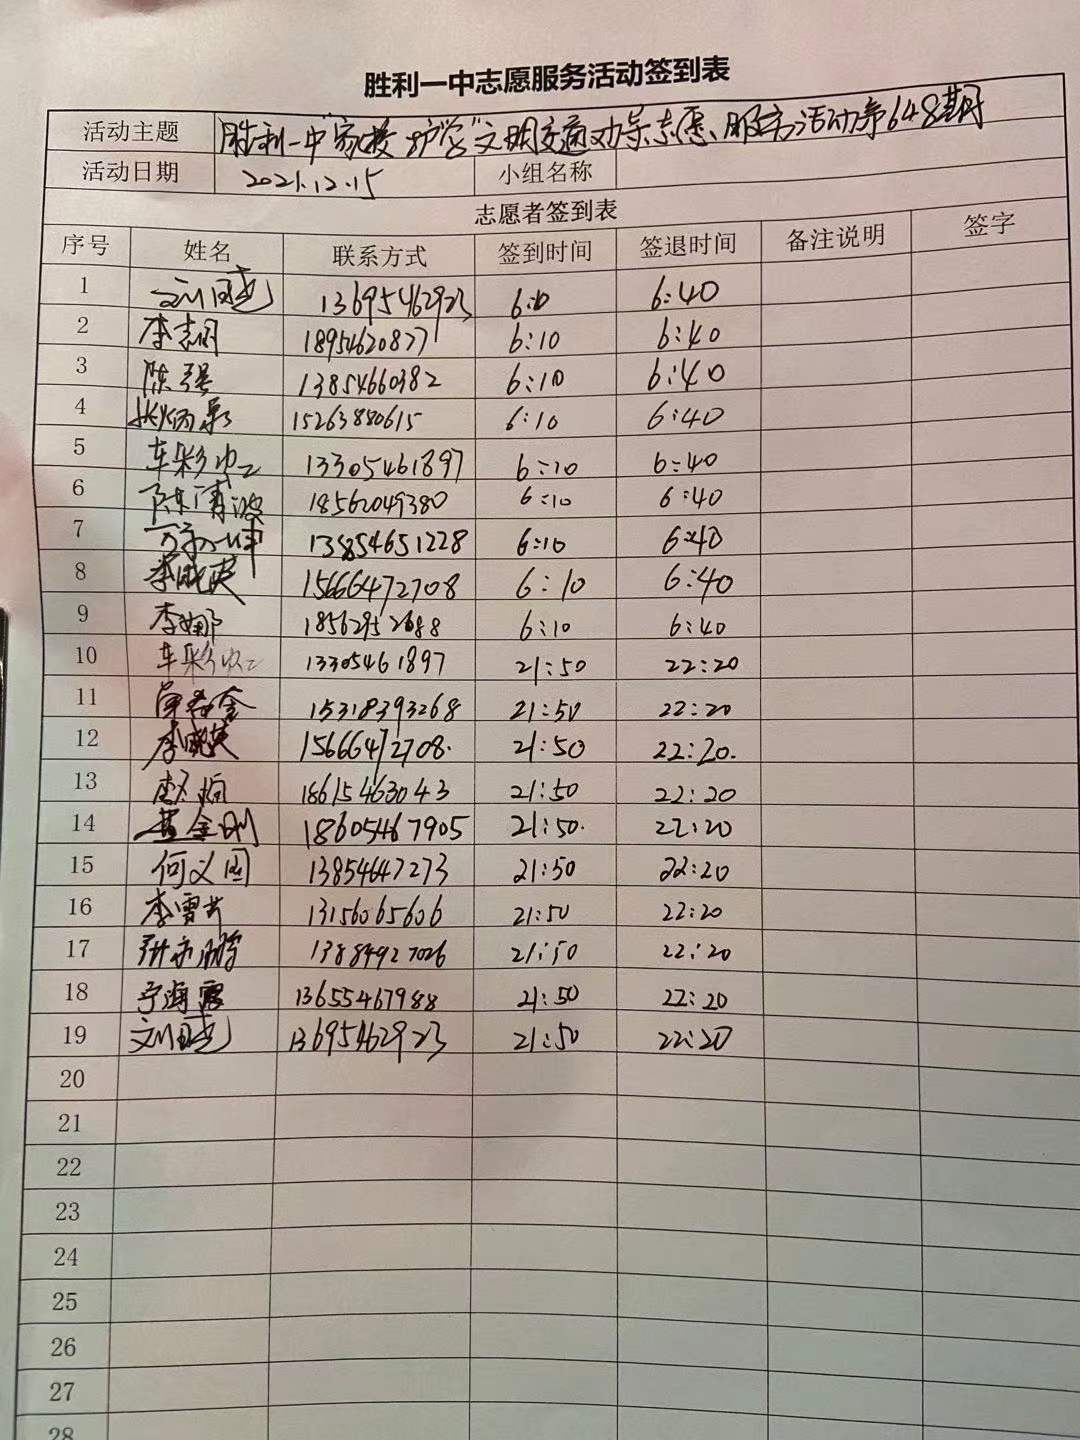 胜利一中志愿服务活动签到表
活动主题 胜利一中"家校护学"文明交通劝导志愿服务活动第648期
活动日期 2021.12.15 小组名称
志愿者签到表
序号 姓名 联系方式 签到时间 签退时间 备注说明 签字
1 13695462923 6:10 6:40
2 李志明 18954620827 6:10 6:40
3 陈强 13854660382 6:10 6:40
4 15263880615 6:10 6:40
5 车彩虹 13305461897 6:10 6:40
6 陈清波 18562049380 6:10 6:40
7 13854651228 6:10 6:40
8 李晓英 15666472708 6:10 6:40
9 李娜 18562952688 6:10 6:40
10 车彩虹 13305461897 21:50 22:20
11 15318393268 21:50 22:20
12 李晓英 15666472708. 21:50 22:20.
13 18615463043 21:50 22:20
14 黄金刚 18605467905 21:50. 22:20
15 何义国 13854647273 21:50 22:20
16 13156065606 21:50 22:20
17 13884927026 21:50 22:20
18 宁海霞 13655467988 21:50 22:20
19 13695462923 21:50 22:20
20
21
22
23
24
25
26
27
28